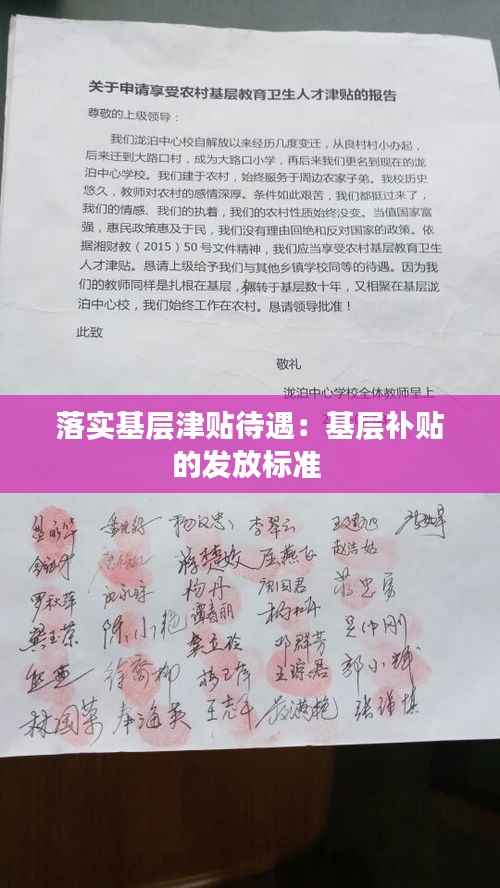 关于申请享受农村基层教育卫生人才津贴的报告
尊敬的上级领导：
我们泷泊中心校自解放以来经历几度变迁，从良村村小办起，
后来迁到大路口村，成为大路口小学，再后来我们更名到现在的泷
泊中心学校。我们建于农村，始终服务于周边农家子弟。我校历史
悠久，教师对农村的感情深厚。条件如此艰苦，我们都挺过来了，
我们的情感、我们的执着，我们的农村性质始终没变。当值国家富
强，惠民政策惠及于民，我们没有理由回绝和反对国家的政策。依
据湘财教（2015）50号文件精神，我们应当享受农村基层教育卫生
人才津贴。恳请上级给予我们与其他乡镇学校同等的待遇。因为我
们的教师同样是扎根在基层，辗转于基层数十年，又相聚在基层泷
泊中心校，我们始终工作在农村。恳请领导批准！
此致
敬礼
泷泊中心学校全体教师呈上
落实基层津贴待遇：基层补贴
的发放标准
杨文忠 李翠云
杨丹
罗秋萍 谭春丽
龚玉荣 陈小艳 邓群芳 吴中刚
徐乔柳 杨玉萍 王琼君 郭小辉
林国荣 奉海英 王志军 张谨慎